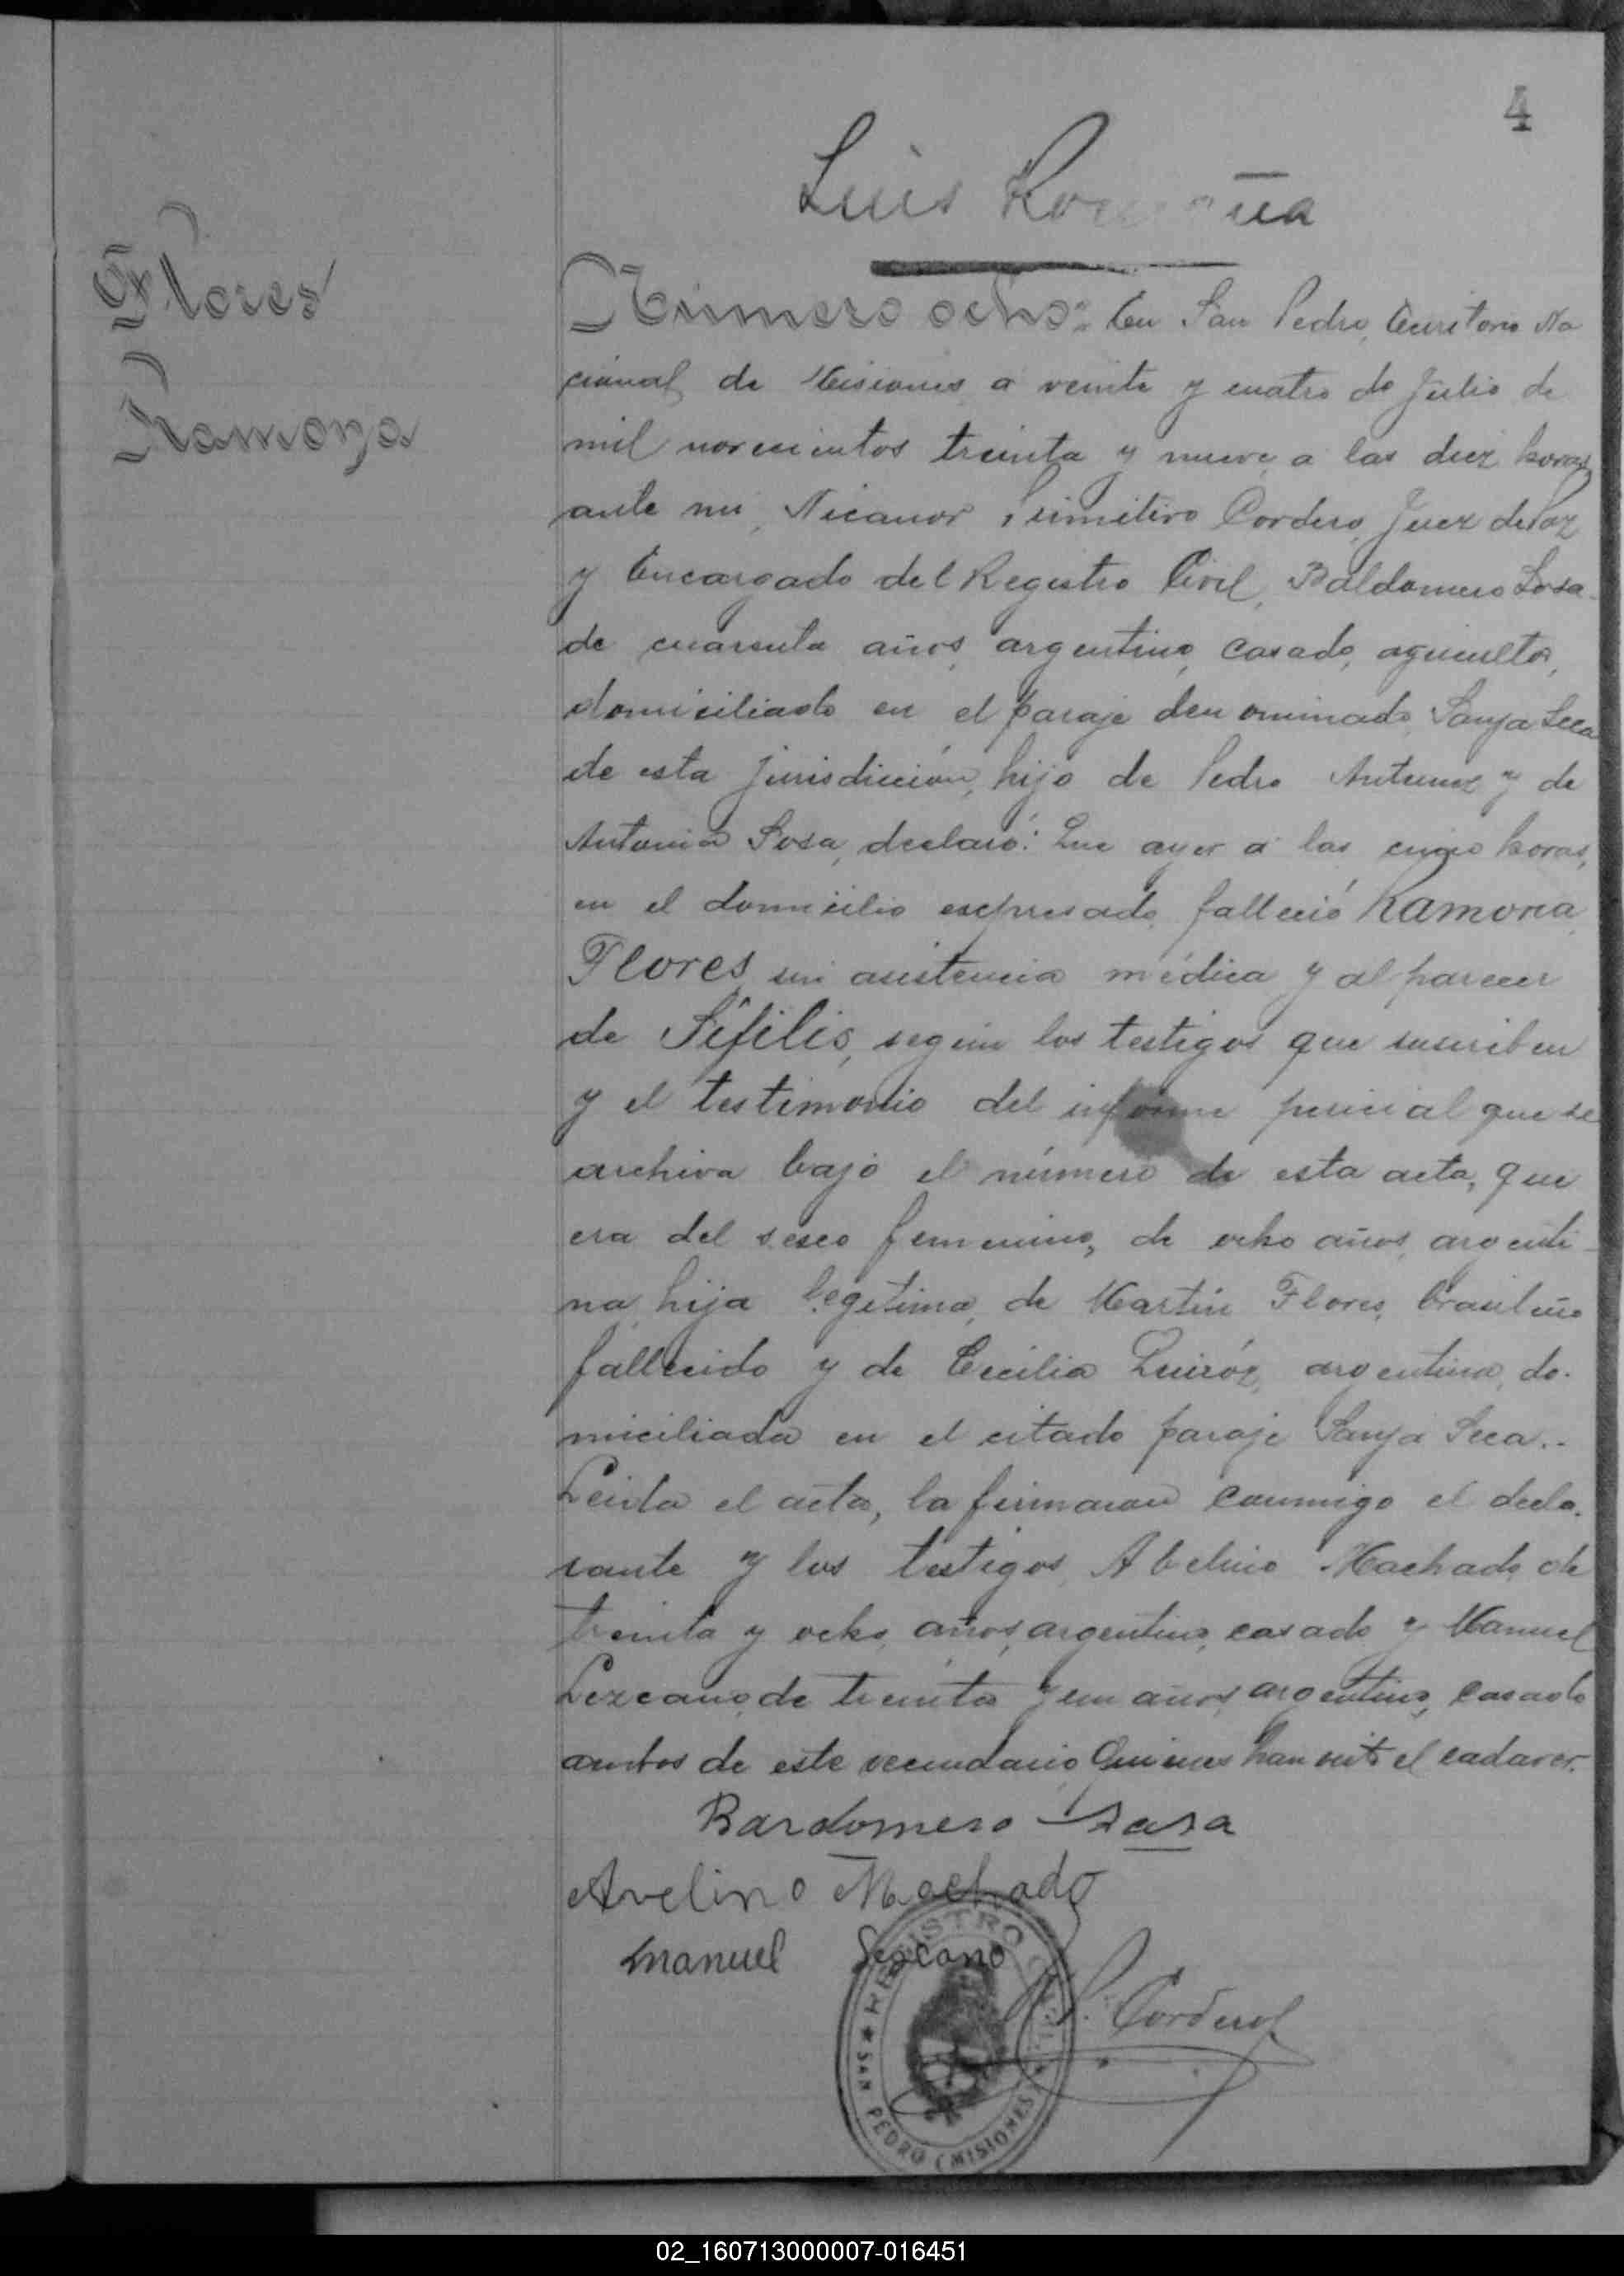 4
Luis
Flores
Ramona
Número ocho: En San Pedro, Territorio Na
cional de Misiones a veinte y cuatro de Julio de
mil novecientos treinta y nueve, a las diez horas,
ante mi, Nicanor Primitivo Cordero, Juez de Paz
y Encargado del Registro Civil, Baldomero Sosa
de cuarenta años, argentino, casado, agricultor,
domiciliado en el paraje denominado Sanja Seca
de esta jurisdicción, hijo de Pedro Antunez y de
Antonia Sosa, declaró: Que ayer a las cinco horas,
en el domicilio expresado, falleció Ramona
Flores, sin asistencia médica y al parecer
de Sífilis, según los testigos que suscriben
y el testimonio del informe pericial que se
archiva bajo el número de esta acta, que
era del sexo femenino, de ocho años, argenti-
na, hija legítima, de Martín Flores, brasileño
fallecido y de Cecilia Quiróz, argentina, do-
miciliada en el citado paraje Sanja Seca.-
Leída el acta, la firmaron conmigo el decla-
rante y los testigos, Abelino Machado, de
treinta y ocho años, argentino, casado y Manuel
Lezcano, de treinta y un años, argentino, casado
ambos de este vecindario, quienes han visto el cadaver.
Bardomero Sasa
Avelino Machado
Manuel Lezcano
P. Cordero
REGISTRO CIVIL
SAN PEDRO (MISIONES)
02_160713000007-016451